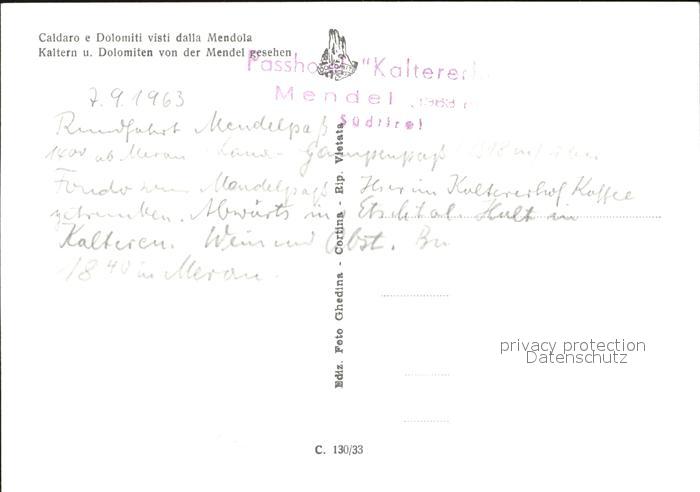 Caldaro e Dolomiti visti dalla Mendola
Kaltern u. Dolomiten von der Mendel gesehen
"Kaltererh
Mendel 1363 m
Südtirol
7.9.1963
Rundfahrt Mendelpaß
1400 ab Meran Lana - Gampenpaß 1518 m
Fondo zum Mendelpaß Hier im Kaltererhof Kaffee
getrunken. Abwärts in Etschtal. Halt in
Kalteren. Wein und Obst.
18 40 in Meran.
Ediz. Foto Ghedina - Cortina - Rip. Vietata
privacy protection
Datenschutz
C. 130/33